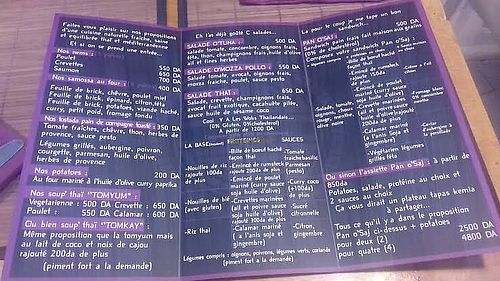 Faites vous plaisir sur nos propositions
d'une cuisine naturelle fraîche, saine,
et équilibrée thaï et méditerranéenne
Et si on se prend une entrée...
Nos nems :
Poulet 550 DA
Crevettes 600 DA
Saumon 650 DA
Nos samossa au four : 700 DA
400 DA
Feuille de brick, chèvre, poulet miel
Feuille de brick, épinard, citron, féta
Feuille de brick, potatoes, viande haché,
curry, petit pois, fromage fondu
Nos tostada pain de campagne toasté : 350 DA
Tomate fraîches, chèvre, thon, herbes de
provence, sauce pesto
Légumes grillés, aubergine, poivron,
courgette, parmesan, huile d'olive,
herbes de provence
Nos potatoes : 200 DA
Au four mariné à l'huile d'olive curry paprika
Nos soup' thaï "TOMYUM" :
Vegetarienne : 500 DA Crevette : 650 DA
Poulet : 550 DA Calamar : 600 DA
Ou bien soup' thaï "TOMKAY" :
Même proposition que la tomyum mais
au lait de coco et noix de cajou
rajouté 200da de plus
(piment fort a la demande)
Eh l'as déjà goûté C salades...
SALADE O'TUNA : 500 DA
salade, tomate, concombre, oignons frais,
féta, thon, champignons frais, huile d'olive
ail et fines herbes
SALADE O'MOZZA POLLO : 550 DA
Salade, tomate, avocat, oignons frais,
mozza fraîche, poulet, sauce pesto
SALADE THAI : 650 DA
Salade, crevette, champignons frais,
avocat fruit exotique, cacahuète pilée,
sauce huile de sésame coco
Cool Y A Les Woks Thaïlandais...
(0% Glutens, 0%cholesterol)
A partir de 1200 DA
LA BASE PROTEINES SAUCES
-Nouilles de riz
rajouté 100da
de plus
-Nouilles de blé
(avec gluten)
-Riz thaï
-Bille de boeuf haché
façon thaï
-Emincé de rumsteck
rajouté 200da de plus
-Emincé de poulet
mariné (curry sauce
soja huile d'olive)
-Crevettes marinées
(ail et poivre sauce
soja huile d'olive)
rajouté 200da de plus
-Calamar mariné
( a l'anis Soja et
gingembre)
-Tomate
fraîche basilic
Parmesan
(pesto)
-Curry coco
(+100da)
de plus
-Sucré
citronnelle
-Citron,
gingembre
Légumes compris : oignons, poivrons, légumes verts, coriande
(piment fort a la demande)
La pour le coup je me tape un bon
sandwich...
PAN O'SAJ : 500 DA
Sandwich pain frais fait maison aux grains
(10% de cholesterol)
Composez votre sandwich Pan O'Saj :
-Salade, tomate,
oignons, chou
rouge, menthe,
olive noire
-Bille de boeuf haché
façon thaï
-Emincé de rumsteck
rajouté 150da
de plus
-Emincé de poulet
mariné (curry
sauce soja
huile d'olive)
-Crevette marinée
(ail et poivre sauce
soja huile d'olive)
rajouté 150da
de plus
-Calamar mariné
( a l'anis Soja et
gingembre)
-Végétarien légumes
grillés féta
Ou sinon l'assiette Pan o'Saj : à partir de
850da
Potatoes, salade, protéine au choix et
2 sauces au choix
Ca vous dirait un plateau tapas kemia
à partager...
Tous ce qu'il y a dans la proposition
Pan O'Saj ci-dessus + potatoes
pour deux (2) 2500 DA
pour quatre (4) 4800 DA